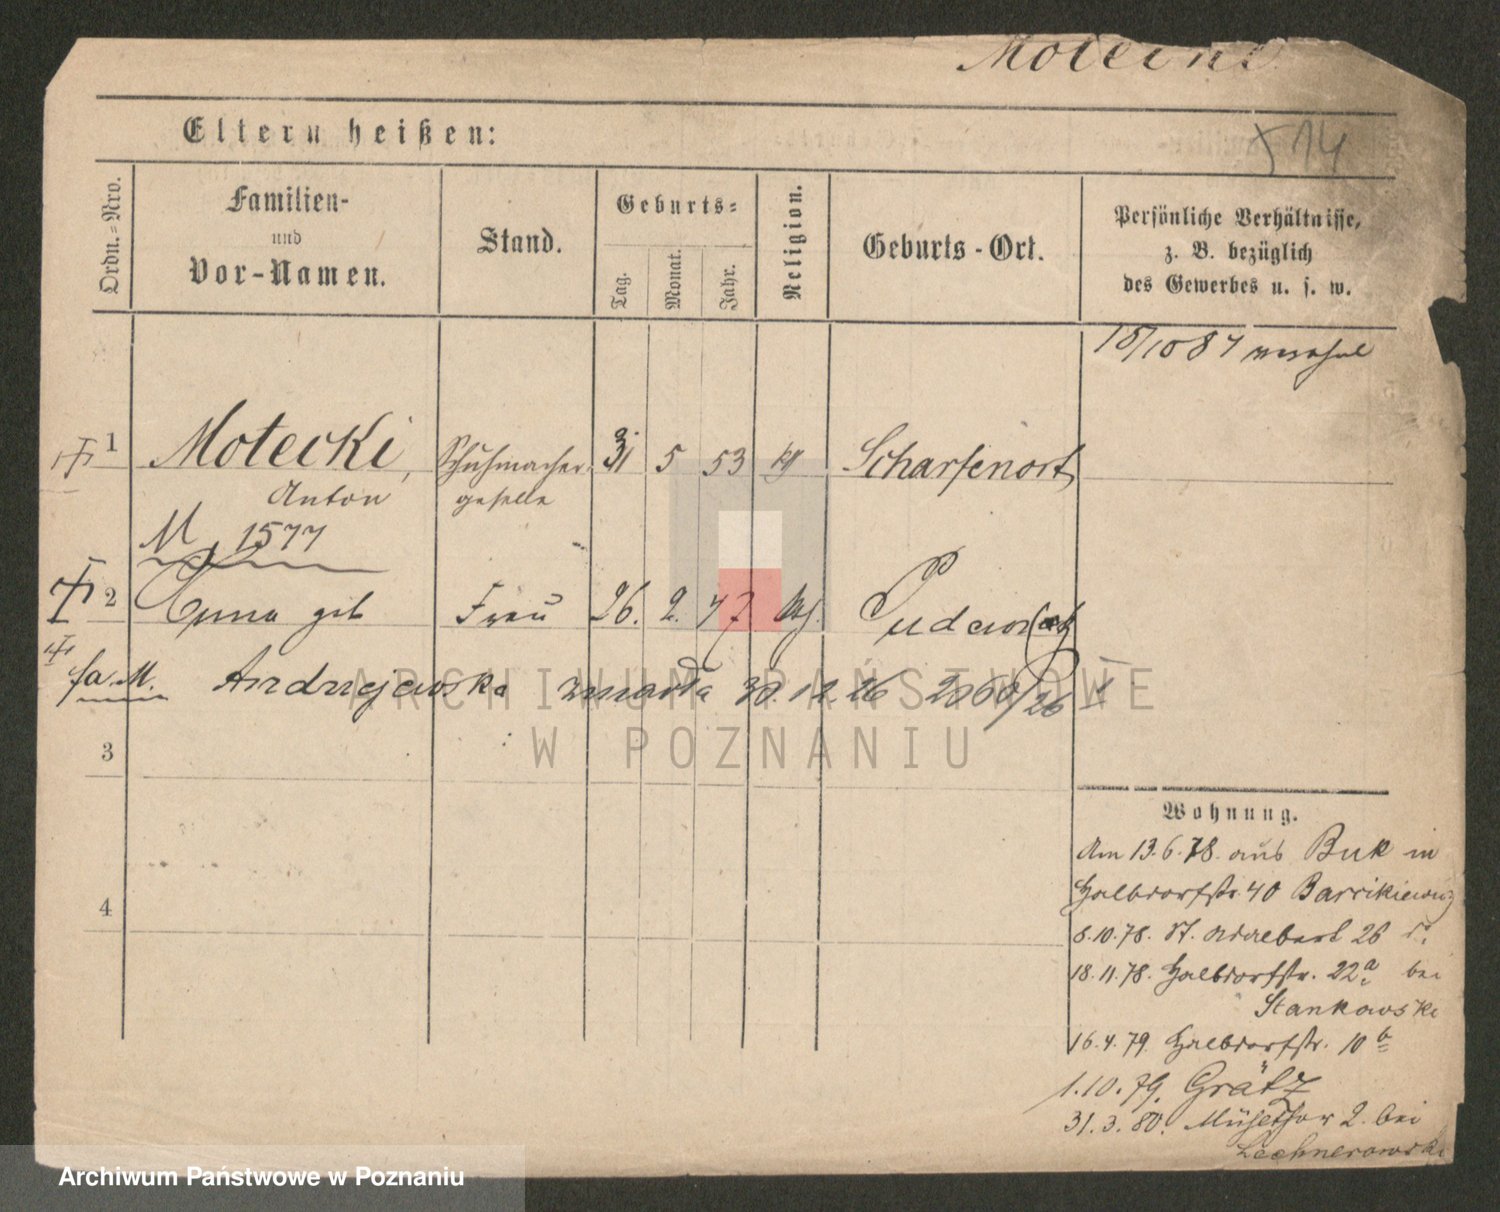 514
Eltern heißen:
Ordn.-Nro.
Familien-
und
Vor-Namen.
Stand.
Geburts-
Tag.
Monat.
Jahr.
Religion.
Geburts-Ort.
Persönliche Verhältnisse,
z. B. bezüglich
des Gewerbes u. s. w.
18/10 87
1 Motecki, Schuhmacher- 31 5 53 Scharfenort
Anton geselle
M 1577
2 Frau 26. 2. 47 Pudewitz
fa M. Andrzejewska zmarła 30.12 26 2060/26 I
3
4
Wohnung.
Am 13.6.78. aus Buk in
Halbdorfstr. 40
8.10.78. St. Adalbert 26
18.11.78. Halbdorfstr. 22a bei
Stankowski
16.4.79. Halbdorfstr. 10 b
1.10.79. Grätz
31.3.80. 2. bei
ARCHIWUM PAŃSTWOWE
W POZNANIU
Archiwum Państwowe w Poznaniu